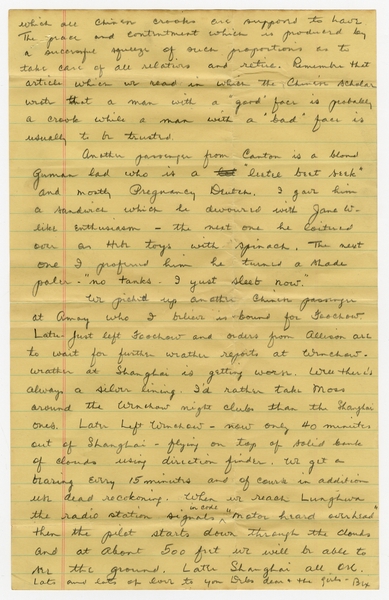 which all Chinese crooks are supposed to have
The peace and contentment which is produced by
a successful squeeze of such proportions as to
take care of all relatives and retire. Remember that
article which we read in which the Chinese scholar
wrote that a man with a "good" face is probably
a crook while a man with a "bad" face is
usually to be trusted.
Another passenger from Canton is a blond
German lad who is a "leetle beet seek"
and mostly Pregnancy Deutch. I gave him
a sandwich which he devoured with Jane W-
like enthusiasm - the next one he loitered
over as Hib toys with spinach. The next
one I profered him he turned a shade
paler - "no tanks. I yust sleeb now."
We picked up another Chinese passenger
at Amoy who I believe is bound for Foochow.
Later Just left Foochow and orders from Allison are
to wait for further weather reports at Wenchow.
Weather at Shanghai is getting worse. Well there's
always a silver lining. I'd rather take Moss
around the Wenchow night clubs than the Shanghai
ones. Later Left Wenchow - now only 40 minutes
out of Shanghai - flying on top of solid banks
of clouds using direction finder. We get a
bearing every 15 minutes and of course in addition
use dead reckoning. When we reach Lunghwa
the radio station signals in code "Motor heard overhead"
then the pilot starts down through the clouds
and at about 500 feet we will be able to
see the ground. Later Shanghai all O.K.
Lots and lots of love to you dear & the girls - Bix